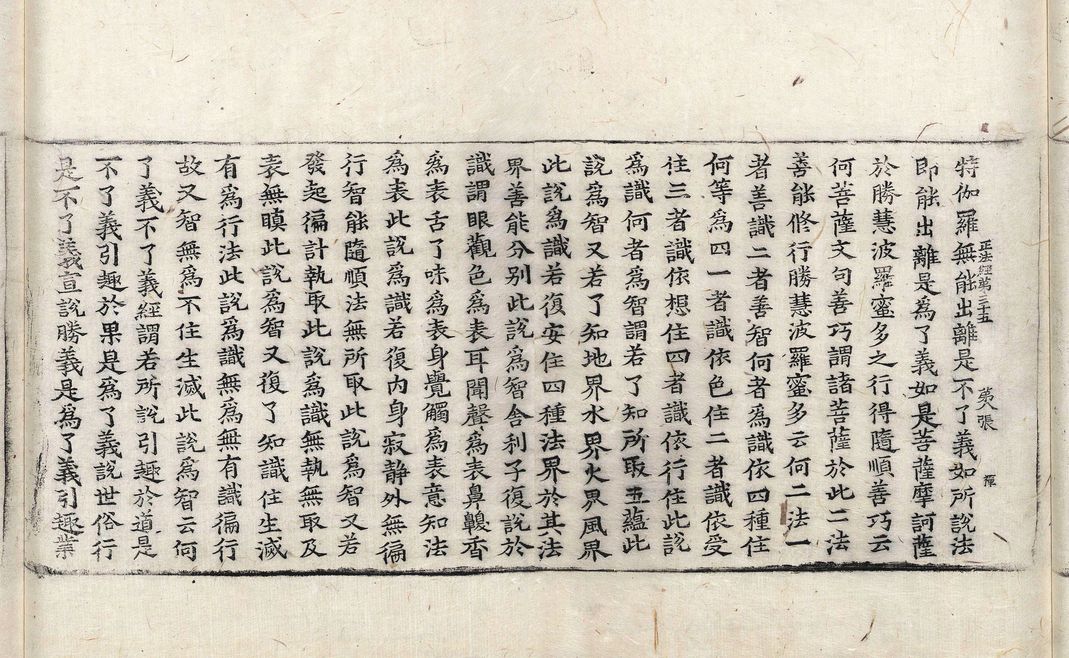 正法經第三十五 第八張
特伽羅無能出離是不了義如所說法
即能出離是為了義如是菩薩摩訶薩
於勝慧波羅蜜多之行得隨順善巧云
何菩薩文句善巧謂諸菩薩於此二法
善能修行勝慧波羅蜜多云何二法一
者善識二者善智何者為識依四種住
何等為四一者識依色住二者識依受
住三者識依想住四者識依行住此說
為識何者為智謂若了知所取五蘊此
說為智又若了知地界水界火界風界
此說為識若復安住四種法界於其法
界善能分別此說為智舍利子復說於
識謂眼觀色為表耳聞聲為表鼻齅香
為表舌了味為表身覺觸為表意知法
為表此說為識若復內身寂靜外無徧
行智能隨順法無所取此說為智又若
發起徧計執取此說為識無執無取及
表無瞋此說為智又復了知識住生滅
有為行法此說為識無為無有識徧行
故又智無為不住生滅此說為智云何
了義不了義經謂若所說引趣於道是
不了義引趣於果是為了義說世俗行
是不了義宣說勝義是為了義引趣業